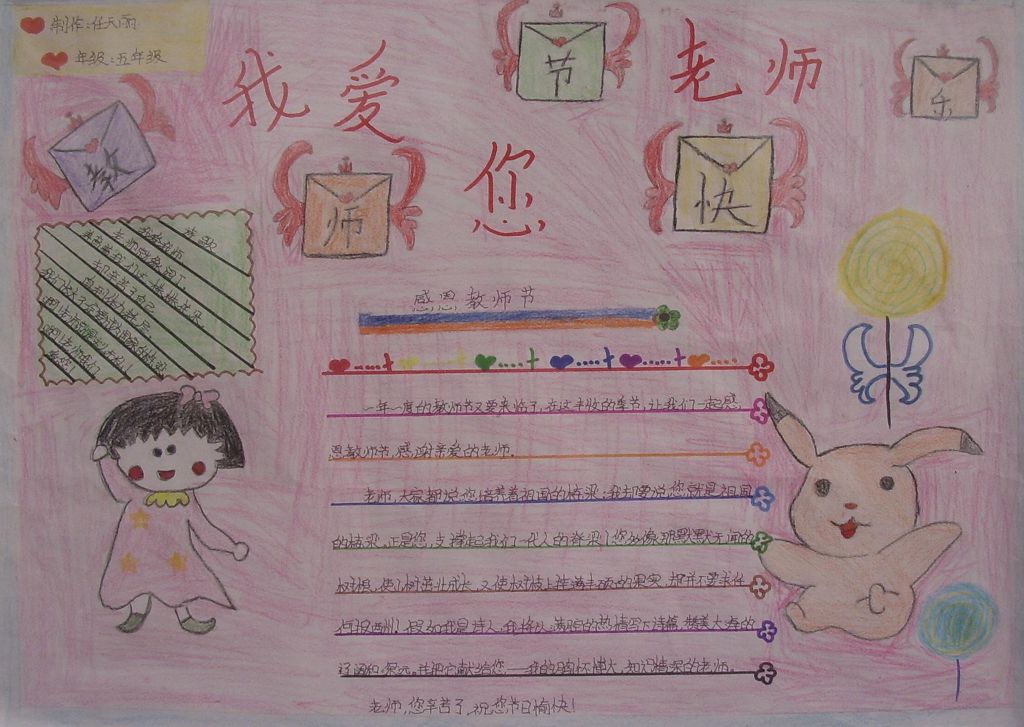 制作:任天雨
年级:五年级
我爱
老师
您
教
师
节
快
乐
感恩教师节
一年一度的教师节又要来临了,在这丰收的季节,让我们一起感
恩教师节,感谢亲爱的老师。
老师,大家都说您培养着祖国的栋梁;我却要说,您就是祖国
的栋梁。正是您,支撑起我们一代人的脊梁!您像那默默无闻的
树根,使小树茁壮成长,又使树枝上挂满丰硕的果实,却并不要求任
何报酬。假如我是诗人,我将以满腔的热情写下诗篇,赞美大海的
辽阔和深远。并把它献给您——我的胸怀博大,知识精深的老师。
老师,您辛苦了,祝您节日愉快!